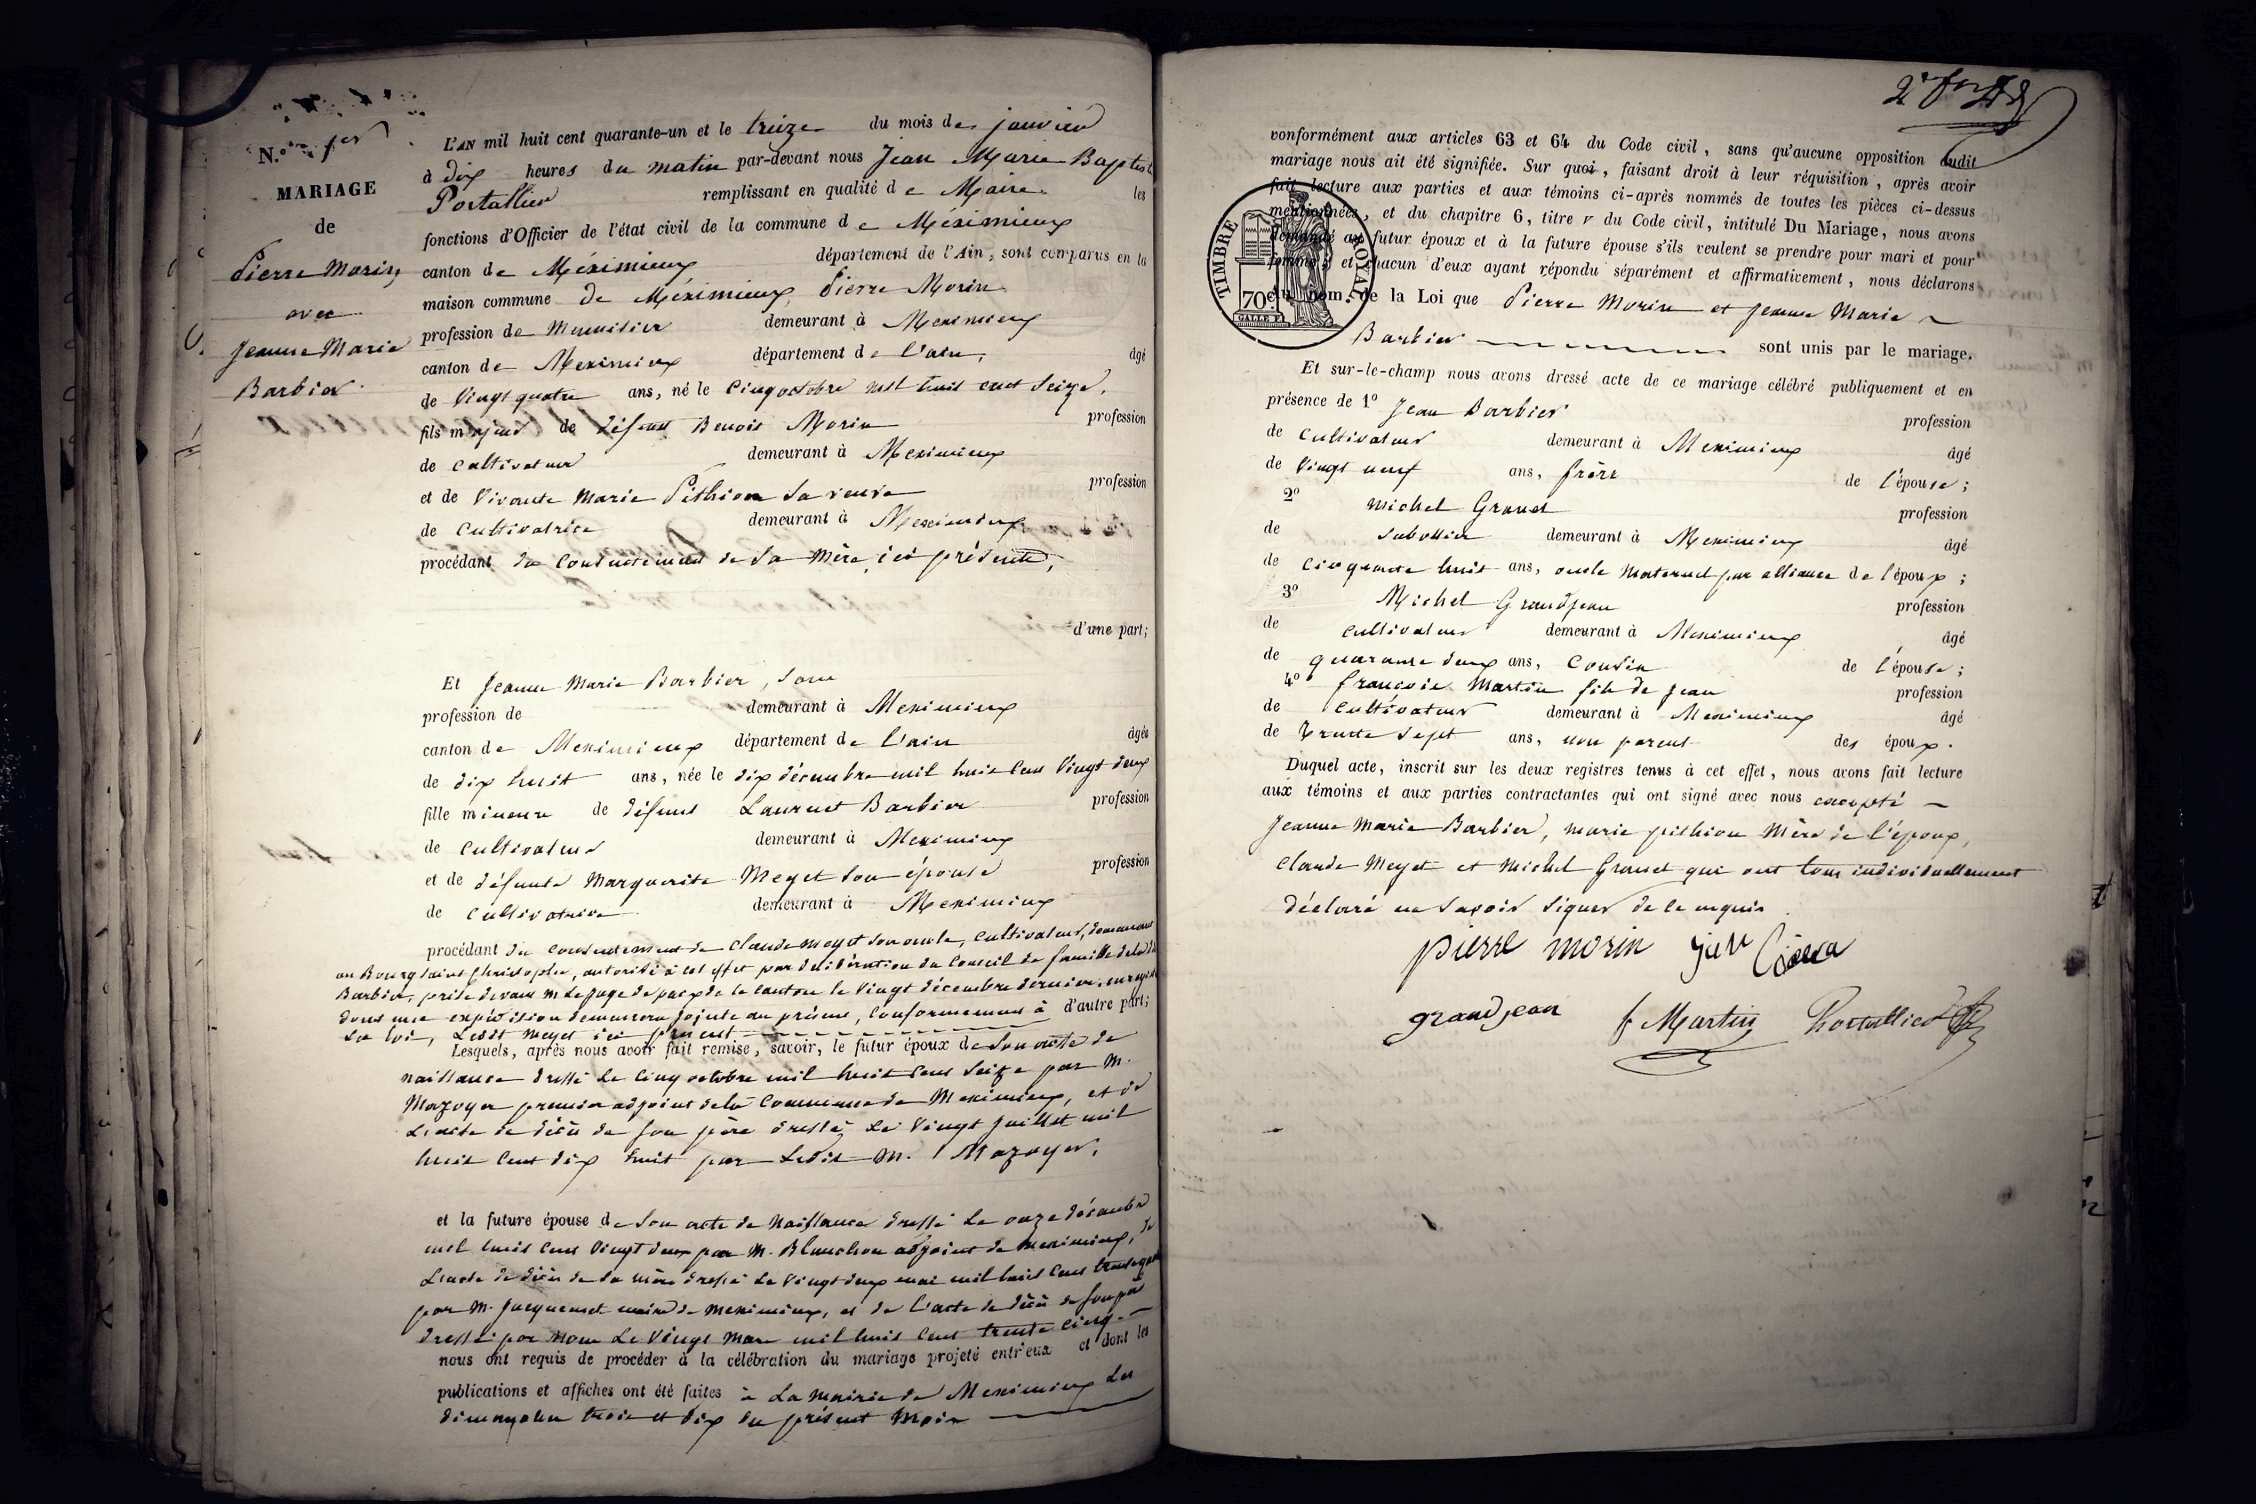 N.° 1er
MARIAGE
de
Pierre Morin
avec
Jeanne Marie
Barbier
L'AN mil huit cent quarante-un et le treize du mois de janvier
à dix heures du matin par-devant nous Jean Marie Baptiste
Portallier remplissant en qualité de Maire les
fonctions d'Officier de l'état civil de la commune de Méximieux
canton de Méximieux département de l'Ain, sont comparus en la
maison commune de Méximieux, Pierre Morin
profession de Menuisier demeurant à Meximieux
canton de Meximieux département de l'ain, âgé
de Vingt quatre ans, né le Cinq octobre mil huit cent Seize,
fils majeur de défunt Benoit Morin profession
de cultivateur demeurant à Meximieux
et de Vivante Marie Pithion Sa veuve profession
de Cultivatrice demeurant à Meximieux
procédant du Consentement de Sa Mère, ici présente,
d'une part;
Et Jeanne Marie Barbier, Sans
profession de demeurant à Meximieux
canton de Meximieux département de l'ain âgée
de dix huit ans, née le dix décembre mil huit Cent Vingt deux
fille mineure de défunt Laurent Barbier profession
de Cultivateur demeurant à Meximieux
et de défunte Marguerite Meyet Son épouse profession
de Cultivatrice demeurant à Meximieux
procédant du Consentement de Claude Meyet Son oncle, Cultivateur, demeurant
au Bourg Saint Christophe, autorisé à cet effet par délibération du Conseil de famille de ladite
Barbier, prise devant M. le Juge de paix de ce Canton le Vingt décembre dernier, enregistrée
dont une expédition demeurera jointe au présent, Conformément à d'autre part;
La loi, Ledit Meyet ici présent
Lesquels, après nous avoir fait remise, savoir, le futur époux de Son acte de
Naissance dressé le Cinq octobre mil huit Cent Seize par M.
Mazoyer premier adjoint de la Commune de Meximieux, et de
L'acte de décès de Son père dressé Le Vingt Juillet mil
huit Cent dix huit par Ledit M. Mazoyer,
et la future épouse de Son acte de Naissance dressé Le onze décembre
mil huit Cent Vingt deux par M. Blanchon adjoint de Meximieux, de
L'acte de décès de Sa mère dressé Le Vingt deux mai mil huit Cent trente quatre
par M. Jacquemet maire de Meximieux, et de l'acte de décès de Son père
dressé par Nous Le Vingt Mars mil huit Cent trente Cinq
nous ont requis de procéder à la célébration du mariage projeté entr'eux et dont les
publications et affiches ont été faites à La Mairie de Meximieux Les
dimanches trois et dix du présent Mois
2e
conformément aux articles 63 et 64 du Code civil, sans qu'aucune opposition audit
mariage nous ait été signifiée. Sur quoi, faisant droit à leur réquisition, après avoir
fait lecture aux parties et aux témoins ci-après nommés de toutes les pièces ci-dessus
mentionnées, et du chapitre 6, titre v du Code civil, intitulé Du Mariage, nous avons
demandé au futur époux et à la future épouse s'ils veulent se prendre pour mari et pour
femme; et chacun d'eux ayant répondu séparément et affirmativement, nous déclarons
au nom de la Loi que Pierre Morin et Jeanne Marie
Barbier sont unis par le mariage.
TIMBRE ROYAL
70c
Et sur-le-champ nous avons dressé acte de ce mariage célébré publiquement et en
présence de 1° Jean Barbier profession
de Cultivateur demeurant à Meximieux âgé
de Vingt neuf ans, frère de l'épouse;
2° Michel Granet profession
de Sabottier demeurant à Meximieux âgé
de Cinquante huit ans, oncle Maternel par alliance de l'époux;
3° Michel Grandjean profession
de Cultivateur demeurant à Meximieux âgé
de quarante deux ans, Cousin de l'épouse;
4° François Martin fils de Jean profession
de Cultivateur demeurant à Meximieux âgé
de Trente Sept ans, non parent des époux.
Duquel acte, inscrit sur les deux registres tenus à cet effet, nous avons fait lecture
aux témoins et aux parties contractantes qui ont signé avec nous excepté
Jeanne Marie Barbier, Marie pithion Mère de l'époux,
Claude Meyet et Michel Granet qui ont tous individuellement
déclaré ne Savoir Signer de ce enquis
pierre morin
grandjean f Martin Portallier